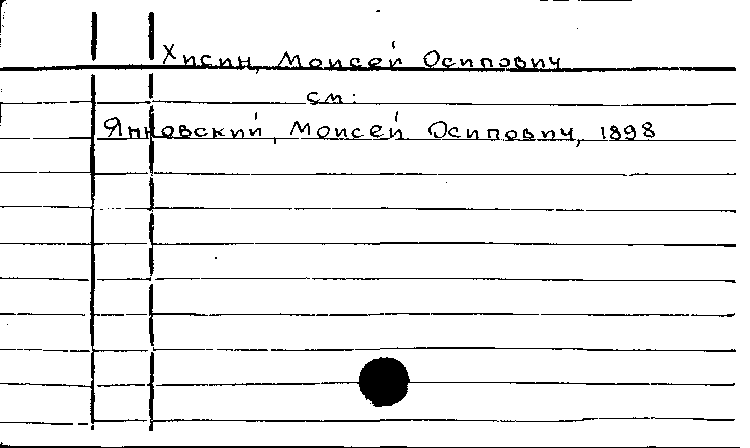 Хисин, Моисей Осипович
см:
Янновский, Моисей Осипович, 1898